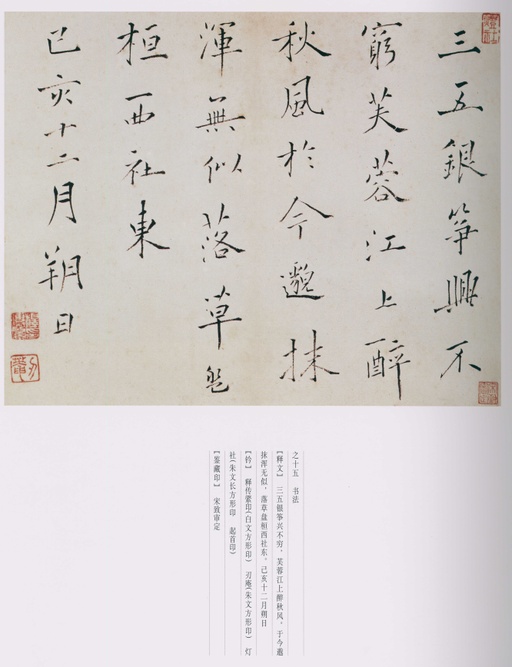 三五銀箏興不
窮芙蓉江上醉
秋風於今邈抹
渾無似落草盤
桓西社東
己亥十二月朔日
之十五 书法
【释文】 三五银筝兴不穷，芙蓉江上醉秋风，于今邈
抹浑无似，落草盘桓西社东，己亥十二月朔日
【钤】 释传綮印(白文方形印) 刃庵(朱文方形印) 灯
社(朱文长方形印 起首印)
【鉴藏印】 宋致审定